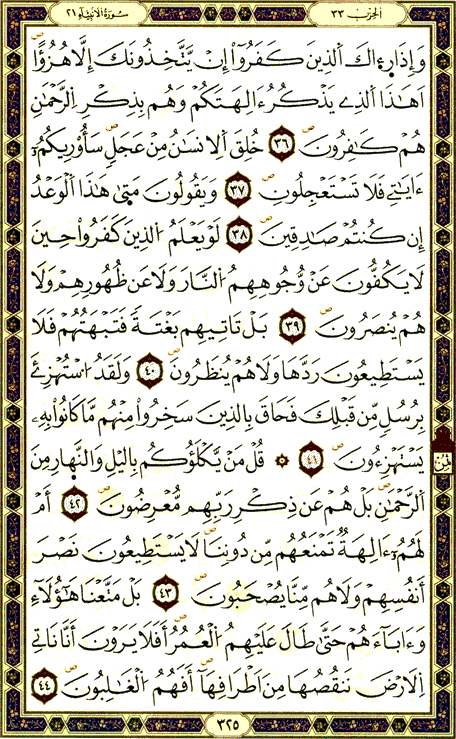 الحزب ٣٣
سورة الأنبياء ٢١
وَإِذَا رَءِاكَ اَلذِينَ كَفَرُوٓاْ إِنْ يَّتَّخِذُونَكَ إِلَّا هُزُؤًاۖ
اَهَٰذَا اَلذِے يَذْكُرُ ءَالِهَتَكُمْ وَهُم بِذِكْرِ اِلرَّحْمَٰنِ
هُمْ كَٰفِرُونَۖ ٣٦ خُلِقَ اَلِانسَٰنُ مِنْ عَجَلٍۖ سَأُوْرِيكُمُۥٓ
ءَايَٰتِے فَلَا تَسْتَعْجِلُونِۖ ٣٧ وَيَقُولُونَ مَتَىٰ هَٰذَا اَلْوَعْدُ
إِن كُنتُمْ صَٰدِقِينَۖ ٣٨ لَوْ يَعْلَمُ اُلذِينَ كَفَرُواْ حِينَ
لَا يَكُفُّونَ عَنْ وُّجُوهِهِمُ اُلنَّارَ وَلَا عَن ظُهُورِهِمْ وَلَا
هُمْ يُنصَرُونَۖ ٣٩ بَلْ تَاتِيهِم بَغْتَةً فَتَبْهَتُهُمْ فَلَا
يَسْتَطِيعُونَ رَدَّهَا وَلَا هُمْ يُنظَرُونَۖ ٤٠ وَلَقَدُ اُسْتُهْزِئَ
بِرُسُلٍ مِّن قَبْلِكَ فَحَاقَ بِالذِينَ سَخِرُواْ مِنْهُم مَّا كَانُواْ بِهِۦ
يَسْتَهْزِءُونَۖ ٤١ ۞ قُلْ مَنْ يَّكْلَؤُكُم بِاليْلِ وَالنَّهارِ مِنَ
اَلرَّحْمَٰنِۖ بَلْ هُمْ عَن ذِكْرِ رَبِّهِم مُّعْرِضُونَۖ ٤٢ أَمْ
لَهُمُۥٓ ءَالِهَةٌ تَمْنَعُهُم مِّن دُونِنَاۖ لَا يَسْتَطِيعُونَ نَصْرَ
أَنفُسِهِمْ وَلَا هُم مِّنَّا يُصْحَبُونَۖ ٤٣ بَلْ مَتَّعْنَا هَٰٓؤُلَآءِ
وَءَابَآءَهُمْ حَتَّىٰ طَالَ عَلَيْهِمُ اُلْعُمُرُۖ أَفَلَا يَرَوْنَ أَنَّا نَاتِے
اِلَارْضَ نَنقُصُهَا مِنَ اَطْرَافِهَآۖ أَفَهُمُ اُلْغَٰلِبُونَۖ ٤٤
ثمن
٣٢٥